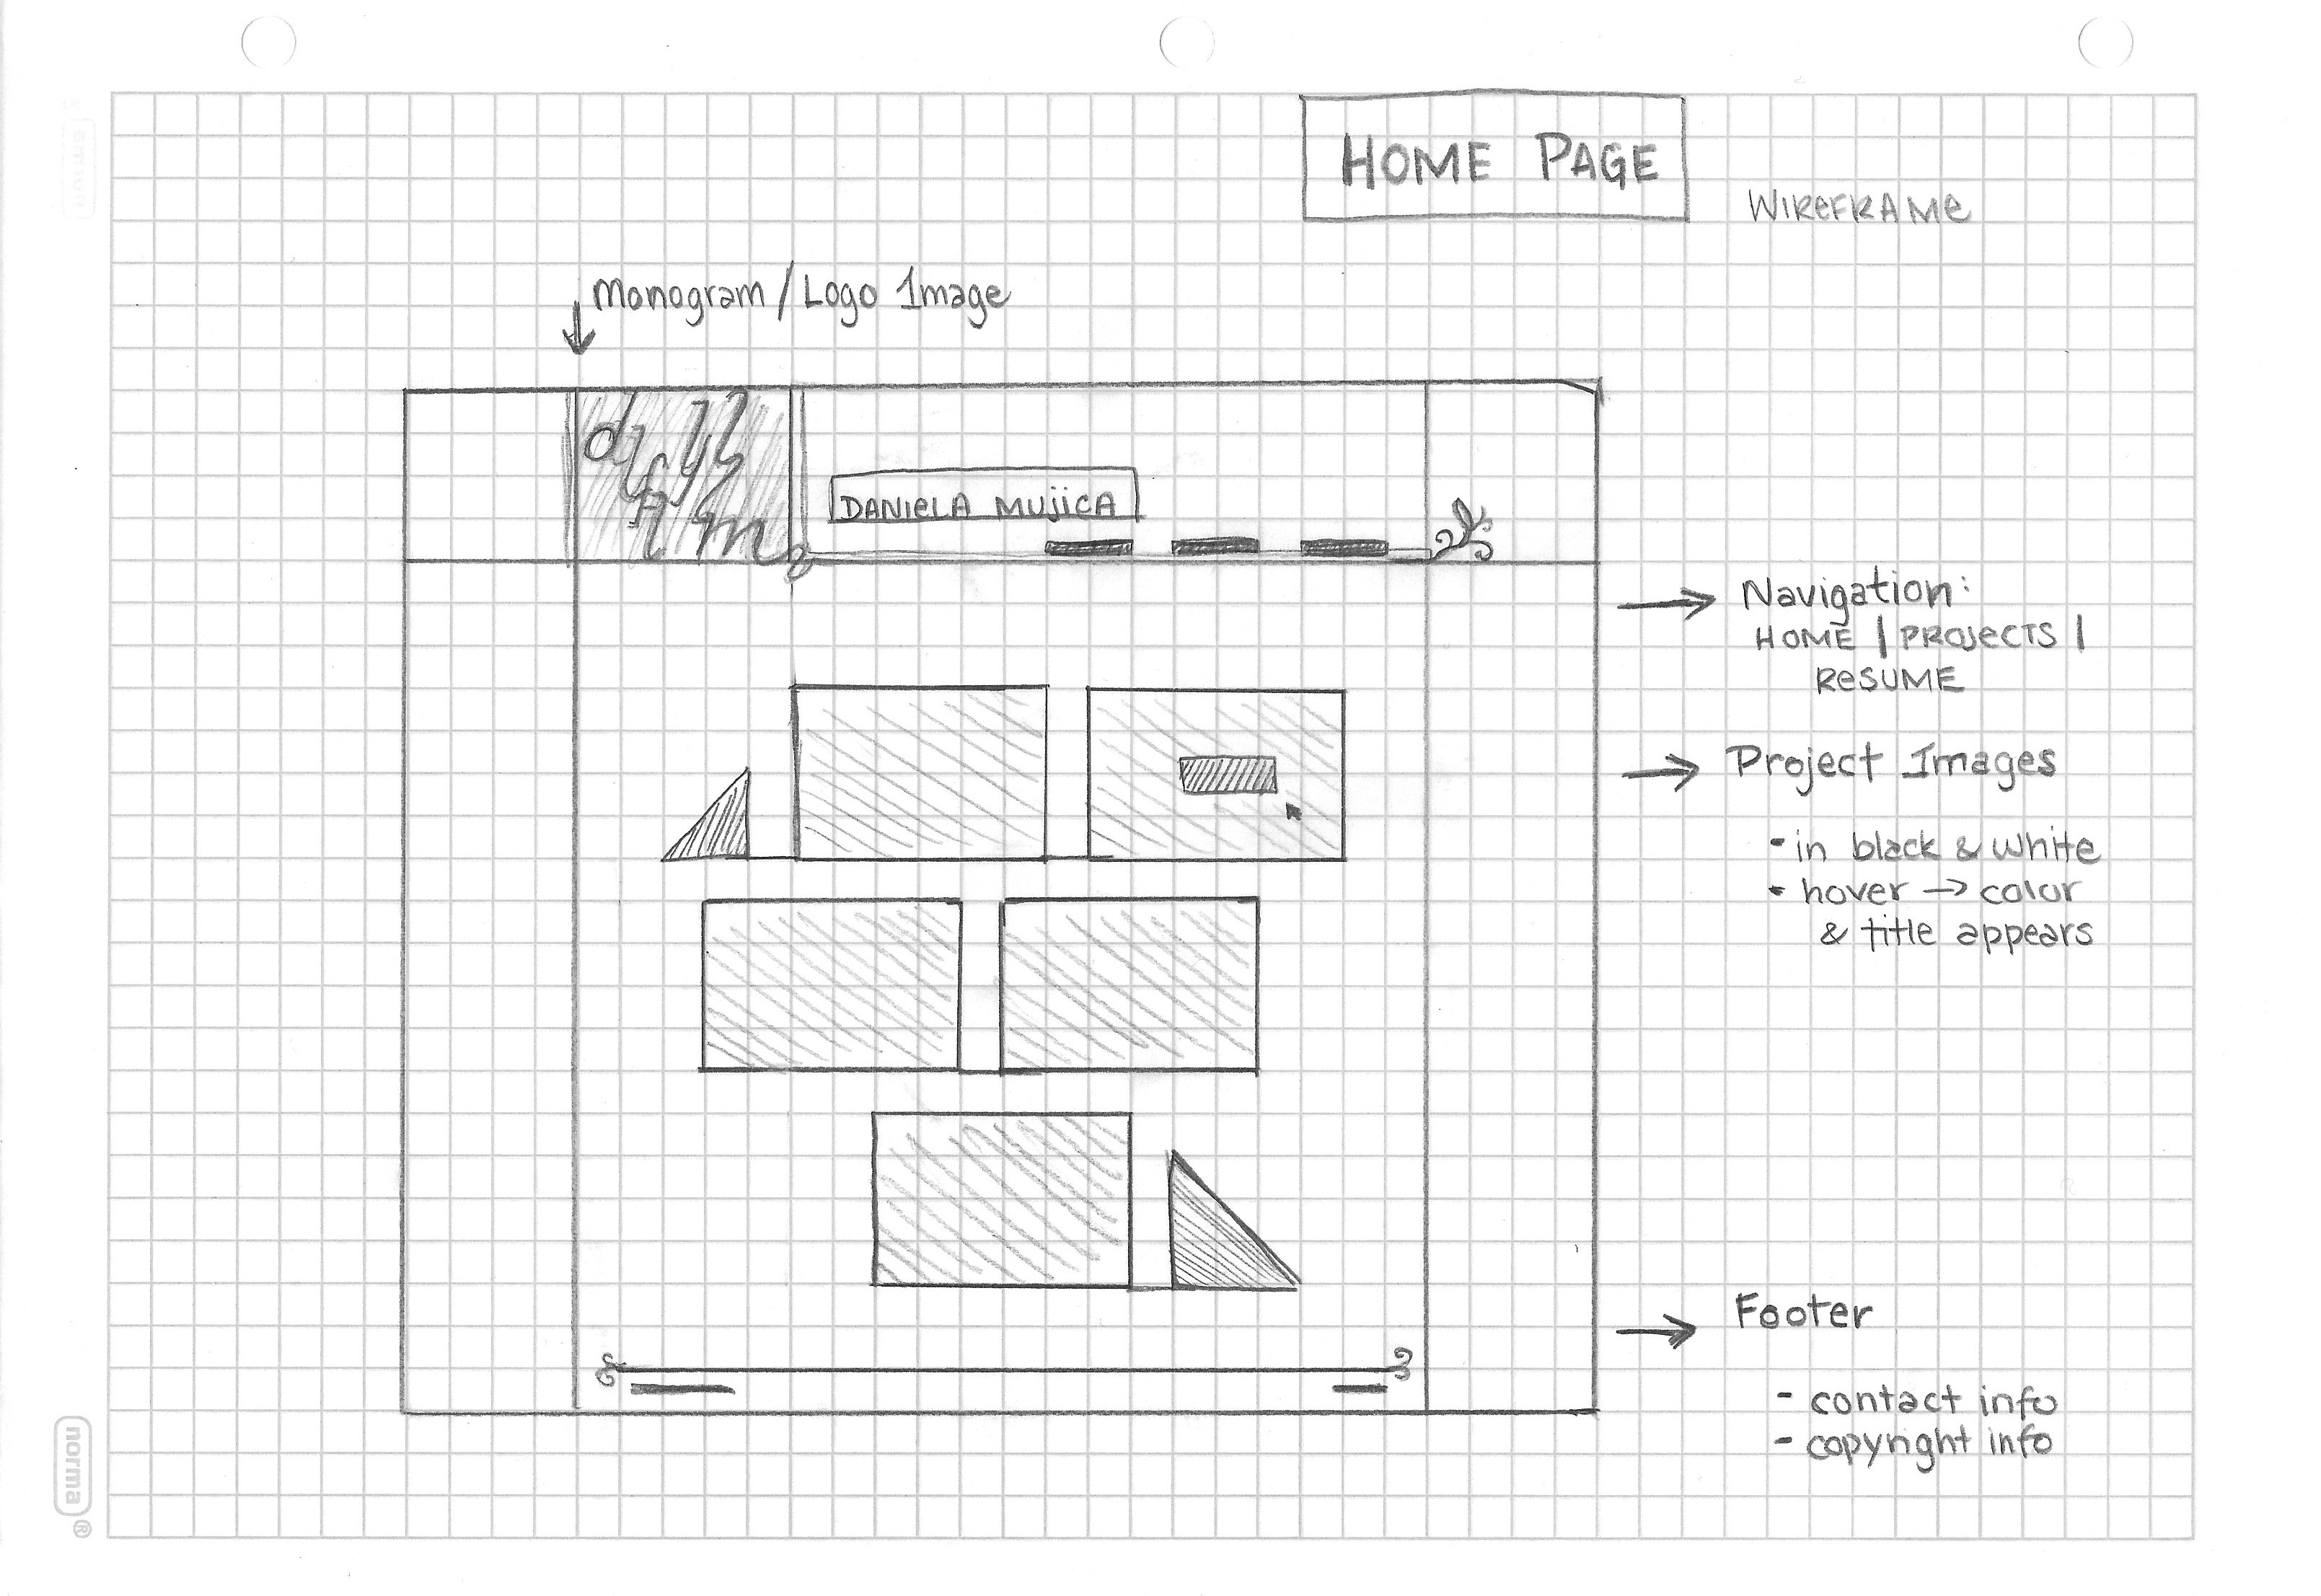 HOME PAGE
WIREFRAME
Monogram / Logo Image
DANIELA MUJICA
Navigation:
HOME | PROJECTS |
RESUME
Project Images
- in black & white
- hover → color
& title appears
Footer
- contact info
- copyright info
norma ®